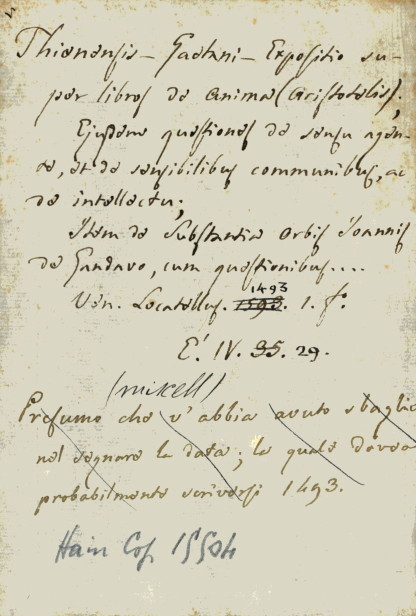 Thienensis - Gaetani - Expositio su-
per libros de anima (Aristotelis).
Ejusdem questiones de sensu agen-
te, et de sensibilibus communibus, ac
de intellectu;
Item de Substantia orbis Joannis
de Gandavo, cum questionibus....
1493
Ven. Locatellus. 1593. 1. f.o
É. IV. 35. 29.
(miscell)
Presumo che v'abbia avuto sbaglio
nel segnare la data; la quale dovea
probabilmente scriversi 1493.
Hain Cop 15504